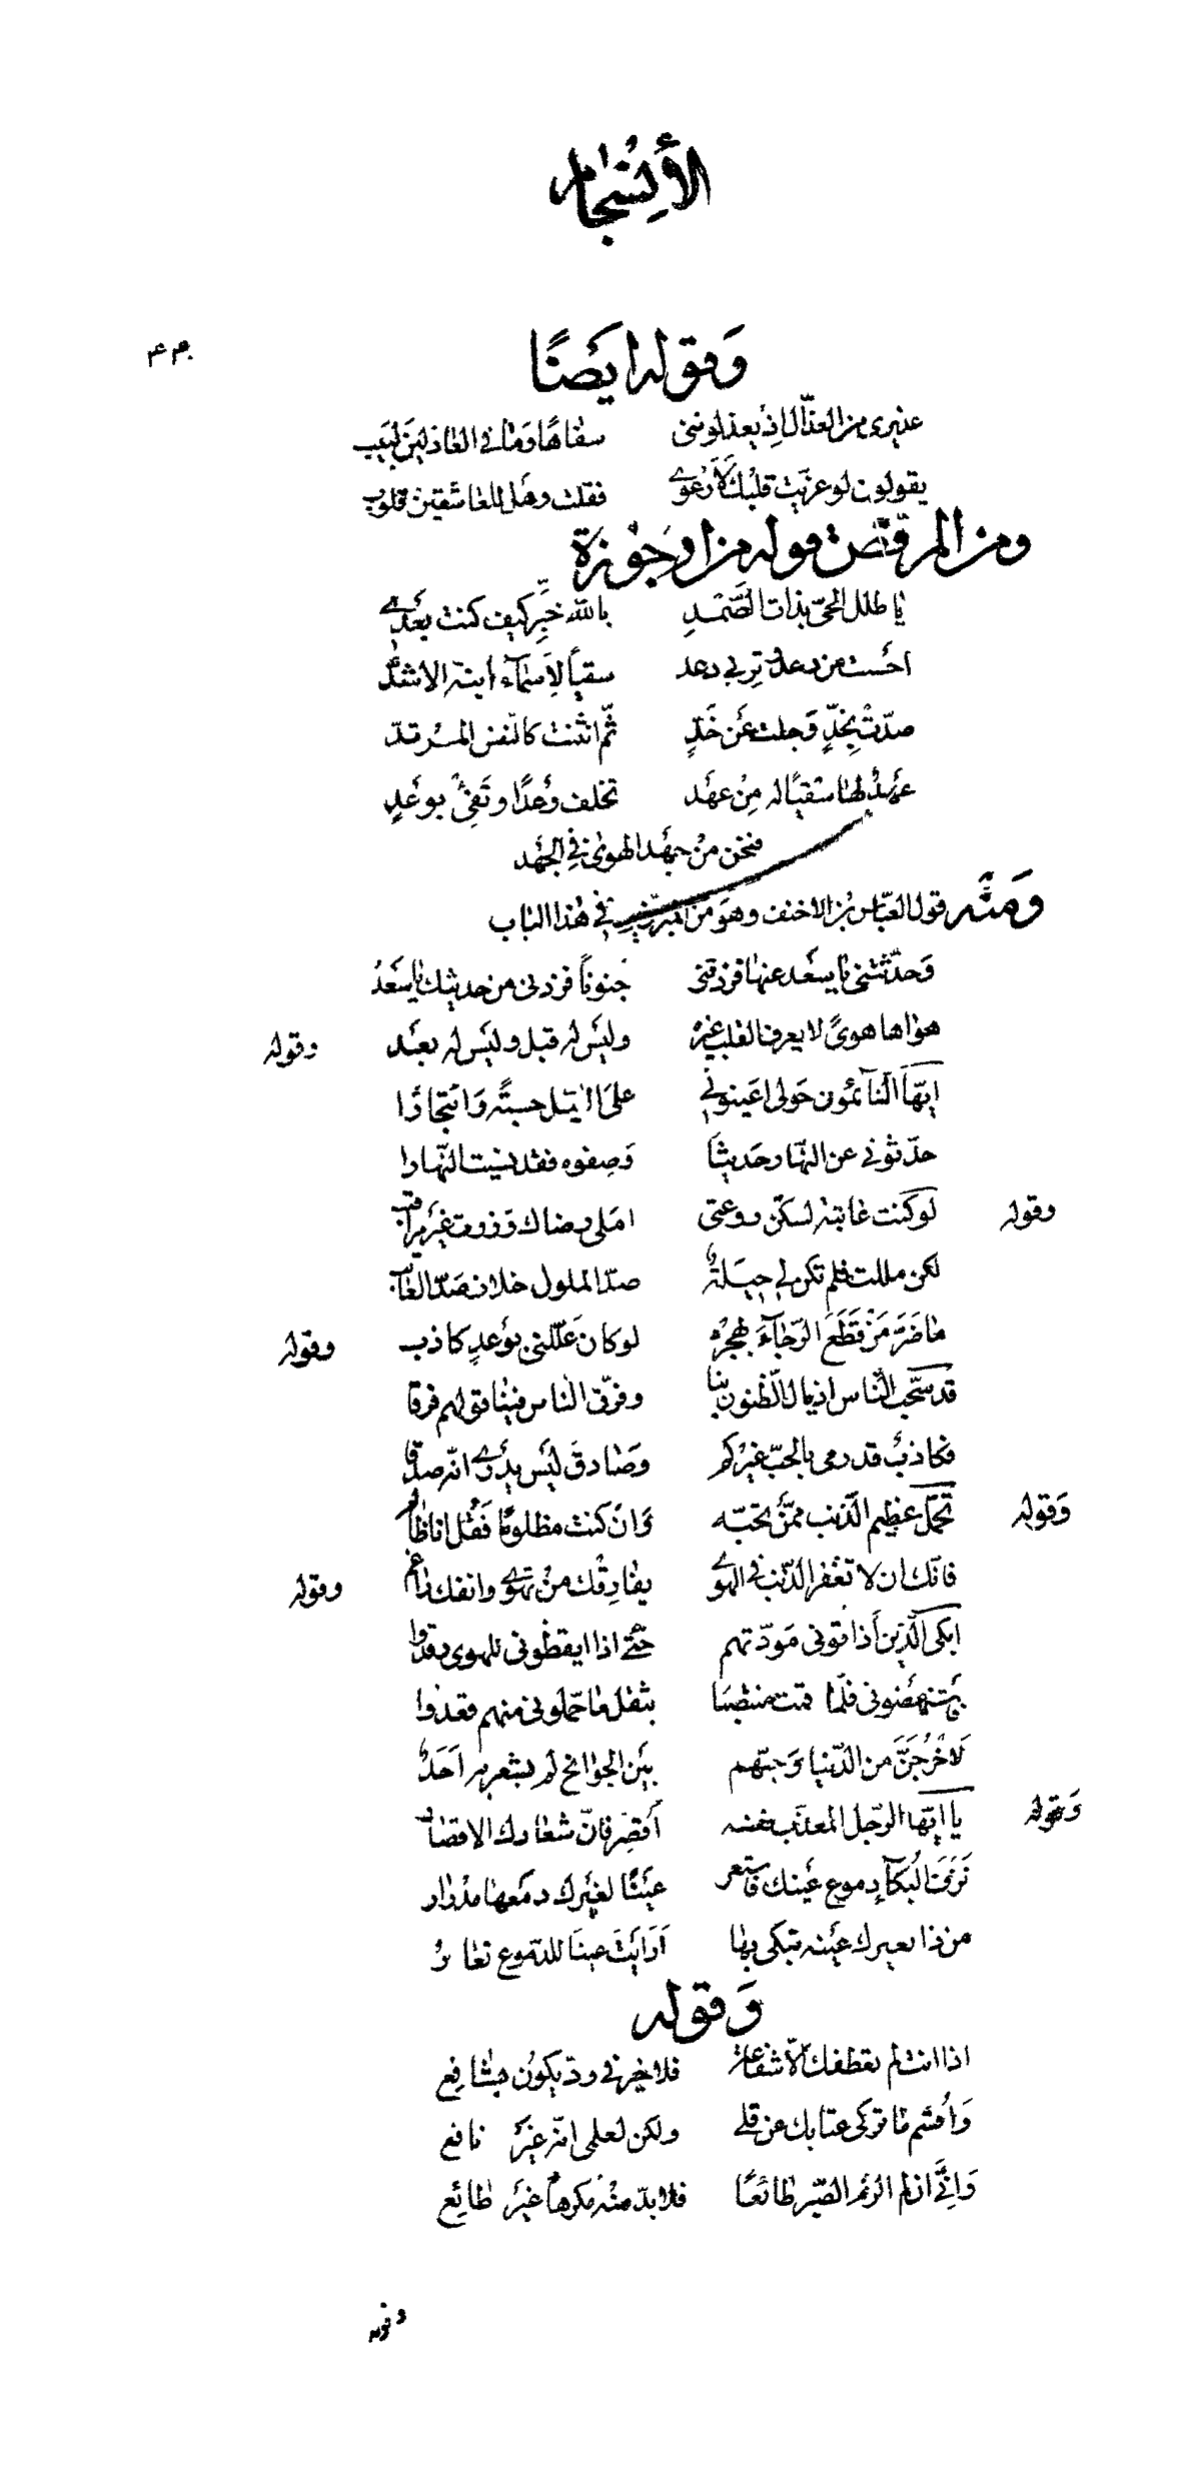 الأنسجام
وقوله ايضًا
عذيرى من العذّال اذ يعذلوننى سفاهًا وما فى العاذلين لبيب
يقولون لو عزيت قلبك لارعوى فقلت وهل للعاشقين قلوب
ومن المرقّص قوله من ارجوزة
يا طلل الحىّ بذات الصّمد بالله خبّر كيف كنت بعدى
اوحشت من دعد وترب دعد سقيًا لأسمآء ابنة الاشدّ
صدّت بخدٍّ وجلت عن خدٍّ ثمّ انثنت كالنّفس المرتدّ
عهدٌ لها سقيًا له من عهد تخلف وعدًا وتفى بوعدٍ
فنحن من جهد الهوى فى الجهد
ومنه قول العبّاس بن الاحنف وهو من المبرّزين فى هذا الباب
وحدّثتنى يا سعد عنها فزدتنى جنونًا فزدنى من حديثك يا سعدُ
هواها هوىً لا يعرف القلب غيره وليس له قبل وليس له بعد وقوله
ايّها النّآئمون حولى اعينونى على الليل حسبةً وائتجارًا
حدّثونى عن النّهار حديثًا وصفوه فقد نسيت النّهارا
وقوله لو كنت عاتبة لسكّن روعتى املى رضاك وزرت غير مراقب
لكن مللت فلم تكن لى حيلةٌ صدّ الملول خلاف صدّ العاتب
ما ضرّ من قطع الرّجآء بهجره لو كان علّلنى بوعدٍ كاذب وقوله
قد سحّب النّاس اذيال الظّنون بنا وفرّق الناس فينا قولهم فرقا
فكاذبٌ قد رمى بالحبّ غيركم وصادق ليس يدرى انّه صدقا
وقوله تحمّل عظيم الذّنب ممّن تحبّه وان كنت مظلومًا فقل انا ظالم
فانّك ان لا تغفر الذّنب فى الهوى يفارقك من تهوى وانفك راغم وقوله
ابكى الّذين أذاقونى مودّتهم حتّى اذا ايقظونى للهوى رقدوا
واستنهضونى فلمّا قمت منتصبًا بثقل ما حمّلونى منهم قعدوا
لأخرجنّ من الدّنيا وحبّهم بين الجوانح لم يشعر به احدٌ
وقوله يا ايّها الرّجل المعذّب نفسه أقصر فانّ شعارك الاقصار
نزف البكآء دموع عينك فاستعر عينًا لغيرك دمعها مدرار
من ذا يعيرك عينه تبكى بها أرأيت عينًا للدّموع تعارُ
وقوله
اذا انت لم يعطفك الّا شفاعة فلا خير فى ودّ يكون بشافع
وأقسم ما تركى عتابك عن قلى ولكن لعلمى انّه غير نافع
وانّى اذا لم الزم الصّبر طائعًا فلا بدّ منه مكرهًا غير طائع
وقوله